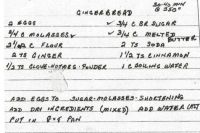 GINGERBREAD 30-40 MIN @ 350°
2 EGGS ✓ 3/4 C BR SUGAR
3/4 C MOLASSES ✓ 3/4 C MELTED BUTTER
2 1/2 C FLOUR 2 TS SODA
2 TS GINGER 1 1/2 TS CINNAMON
1/2 TS CLOVE-NUTMEG-POWDER 1 C BOILING WATER
ADD EGGS TO SUGAR-MOLASSES-SHORTENING
ADD DRY INGREDIENTS (MIXED) ADD WATER LAST
PUT IN PAN